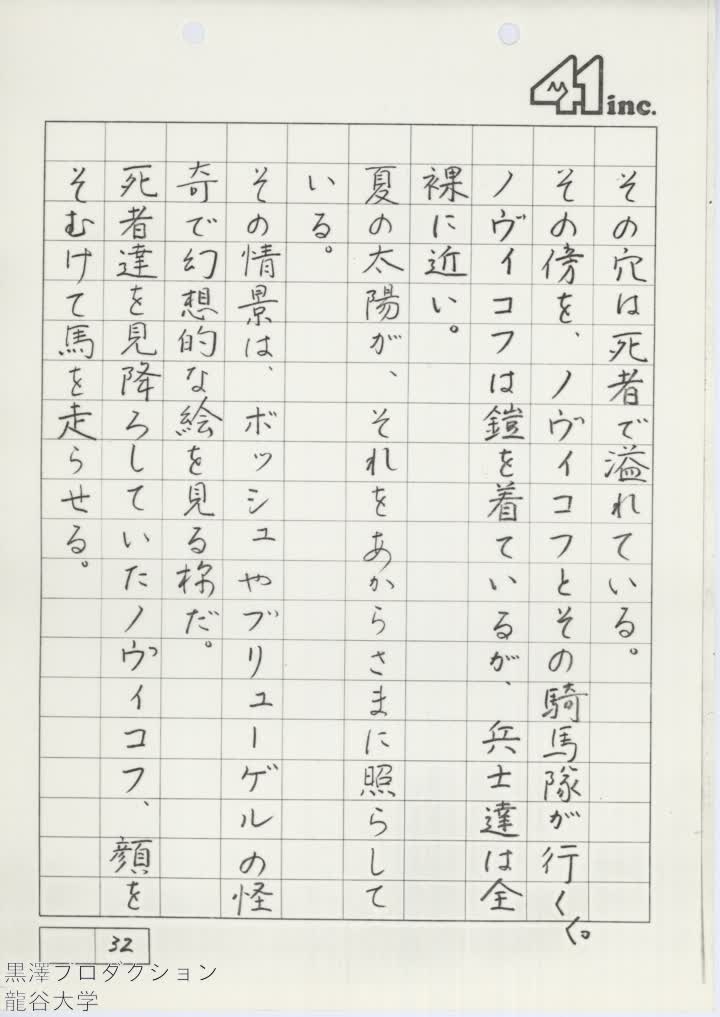 41 inc.
その穴は死者で溢れている。
その傍を、ノヴィコフとその騎馬隊が行く。
ノヴィコフは鎧を着ているが、兵士達は全
裸に近い。
夏の太陽が、それをあからさまに照らして
いる。
その情景は、ボッシュやブリューゲルの怪
奇で幻想的な絵を見る様だ。
死者達を見降ろしていたノヴィコフ、顔を
そむけて馬を走らせる。
32
黒澤プロダクション
龍谷大学